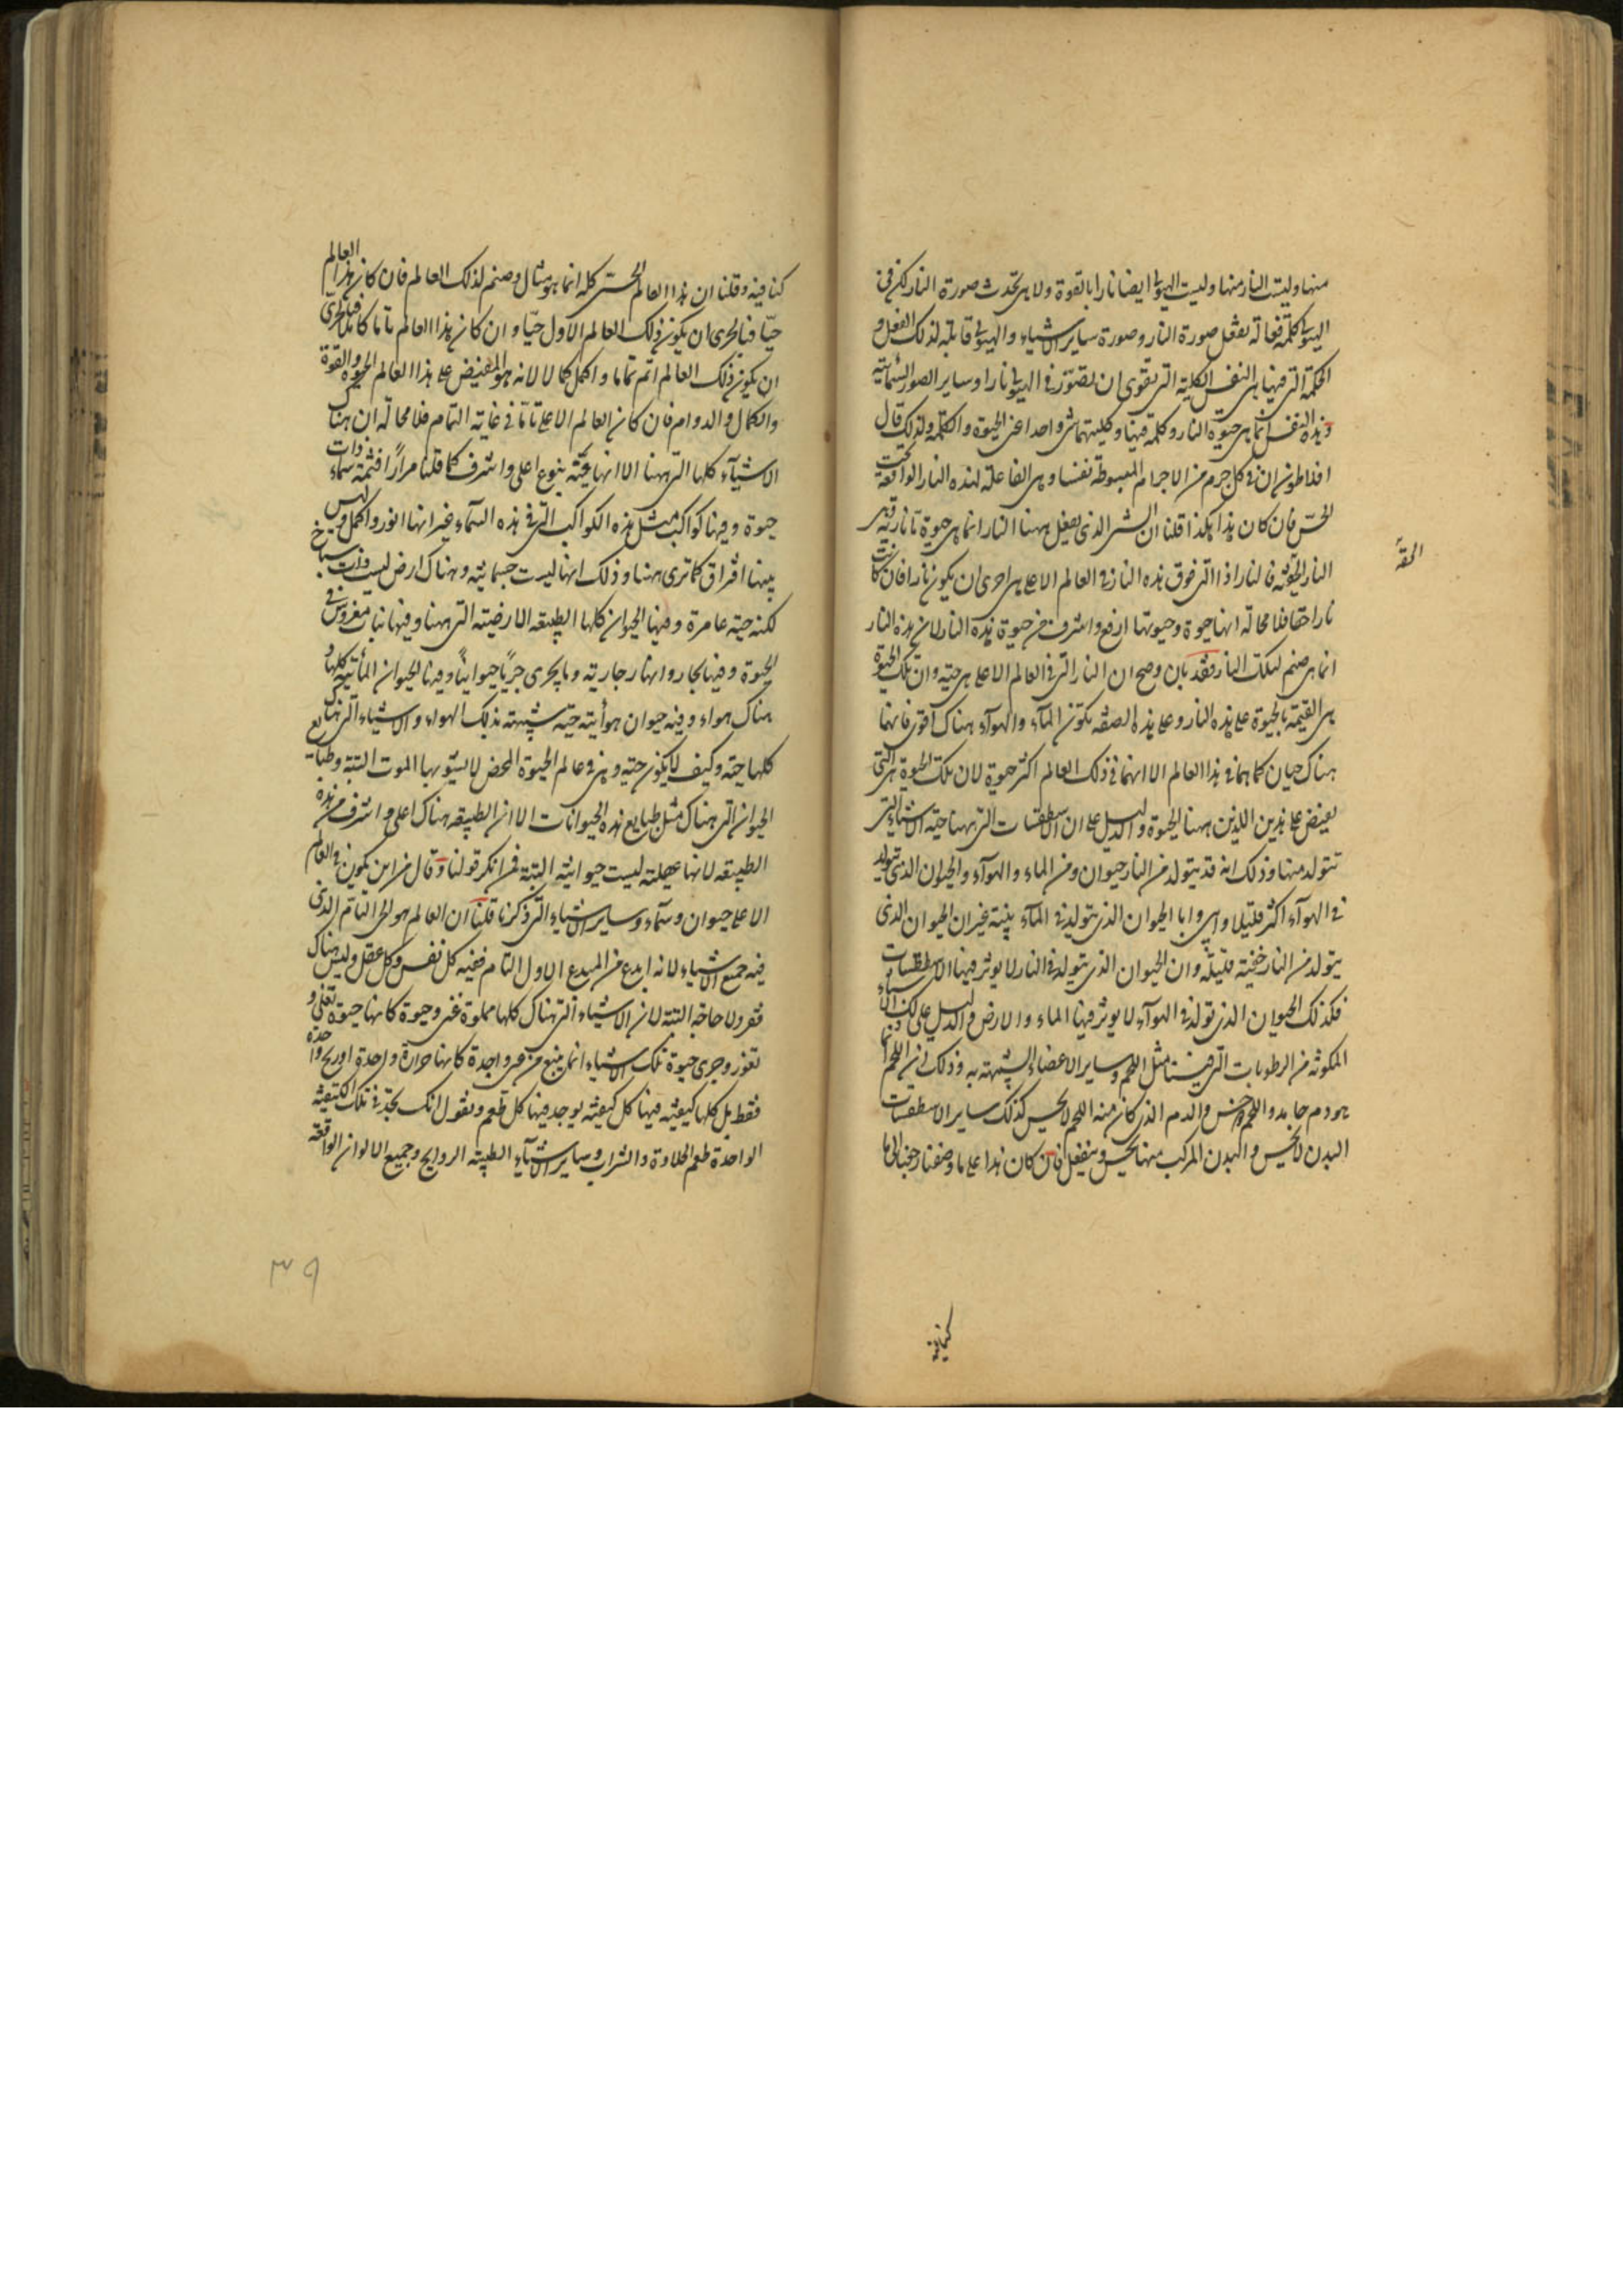 منها وليست النار منها وليست الهيولى ايضا نارا بالقوة ولا هى تحدث صورة النار لكن فى
الهيولى كلمة فعالة تفعل صورة النار وصورة ساير الاشياء والهيولى قابلة لذلك الفعل و
الكلمة التى فيها هى النفس الكلية التى تقوى ان تصور فى الهيولى نارا وساير الصور السمائية
وهذه النفس انما هى حيوة النار وكلمة فيها وكليتهما شى واحد اعنى الحيوة والكلمة ولذلك قال
افلاطون ان فى كل جرم من الاجرام المبسوطة نفسا وهى الفاعلة لهذه النار الواقعة تحت
الحس فان كان هذا هكذا قلنا ان الشى الذى يفعل ههنا النار انما هى حيوة ما نارية وهى
النار الحقية فالنار اذا التى فوق هذه النار فى العالم الاعلى هى احرى ان يكون نارا فان كانت
الحقة
نارا حقا فلا محالة انها حيوة وحيوتها ارفع واشرف من حيوة هذه النار لان هذه النار
انما هى صنم لتلك النار فقد بان وصح ان النار التى فى العالم الاعلى هى حية وان تلك الحيوة
هى القيمة بالحيوة على هذه النار وعلى هذه الصفة يكون المآء والهوآء هناك اقوى فانهما
هناك حيان كما هما فى هذا العالم الا انهما فى ذلك العالم اكثر حيوة لان تلك الحيوة هى التى
تفيض على هذين اللذين ههنا الحيوة والدليل على ان الاسطقسات التى ههنا حية الاشياء التى
تتولد منها وذلك انه قد يتولد من النار حيوان ومن الماء والهوآء والحيوان الذى يتولد
فى الهوآء اكثر قليلا واما الحيوان الذى يتولد فى المآء بينة غير ان الحيوان الذى
يتولد من النار خفية قليلة وان الحيوان الذى يتولد فى النار لا يوثر فيها الاسطقسات
فكذلك الحيوان الذى تولد فى الهوآء لا يوثر فيها الماء والارض والدليل على ذلك الاشياء
المكونة من الرطوبات التى فينا مثل اللحم وساير الاعضاء الشبيهة به وذلك ان اللحم انما
هو دم جامد واللحم حس والدم الذى كان منه اللحم لا يحس كذلك ساير الاسطقسات
البدن لا يحس والبدن المركب منها يحس وينفعل فان كان هذا على ما وصفنا رجعنا الى ما
كنا فيه
كنا فيه وقلنا ان هذا العالم الحسى كله انما هو مثال وصنم لذلك العالم فان كان هذا العالم
حيا فبالحرى ان يكون ذلك العالم الاول حيا وان كان هذا العالم تاما كاملا فبالحرى
ان يكون ذلك العالم اتم تماما واكمل كمالا لانه هو المفيض على هذا العالم الحيوة والقوة
والكمال والدوام فان كان العالم الاعلى تاما فى غاية التمام فلا محالة ان هناك
الاشيآء كلها التى ههنا الا انها فيه بنوع اعلى واشرف كما قلنا مرارا فثمة سماء ذات
حيوة وفيها كواكب مثل هذه الكواكب التى فى هذه السماء غير انها انور واكمل وليس
بينها افتراق كما ترى ههنا وذلك انها ليست جسمانية وهناك ارض ليست ذات سباخ
لكنه حية عامرة وفيها الحيوان كلها الطبيعة الارضية التى ههنا وفيها نبات مغروس فى
الحيوة وفيها بحار وانهار جارية وما يجرى جريا حيوانيا وفيها الحيوان المائية كلها و
هناك هواء وفيه حيوان هوائية حية شبيهة بذلك الهواء والاشياء التى هناك
كلها حية وكيف لا يكون حية وهى فى عالم الحيوة المحض لا يشوبها الموت البتة وطبايع
الحيوان التى هناك مثل طبايع هذه الحيوانات الا ان الطبيعة هناك اعلى واشرف من هذه
الطبيعة لانها عقلية ليست حيوانية البتة فمن انكر قولنا وقال من اين يكون فى العالم
الاعلى حيوان وسمآء وساير الاشياء التى ذكرنا قلنا ان العالم هو الحى التام الذى
فيه جميع الاشياء لانه ابدع من المبدع الاول التام ففيه كل نفس وكل عقل وليس هناك
فقر ولا حاجة البتة لان الاشياء التى هناك كلها مملوة غنى وحيوة كانها حيوة تغلى و
تفور وجرى حيوة تلك الاشياء انما ينبع من عين واحدة كانها حرارة واحدة او ريح واحدة
فقط بل كلها كيفية فيها كل كيفية يوجد فيها كل طعم ونقول انك تجد فى تلك الكيفية
الواحدة طعم الحلاوة والشراب وساير الاشيآء الطيبة الروايح وجميع الالوان الواقعة
٣٩